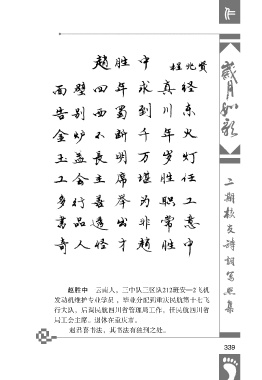 作
赵胜中 程光贤
面壁四年求真经
告别西蜀到川东
金炉不断千年火
玉盏长明万岁灯
工会主席堪胜任
多行善举为职工
书品透出非常意
奇人怪才赵胜中
赵胜中 云南人，三中队三区队212班安—2飞机
发动机维护专业学员，毕业分配到重庆民航第十七飞
行大队，后调民航四川省管理局工作，任民航四川省
局工会主席。退休在重庆市。
赵君喜书法，其书法有独到之处。
岁月如歌
二期校友诗词写照集
339